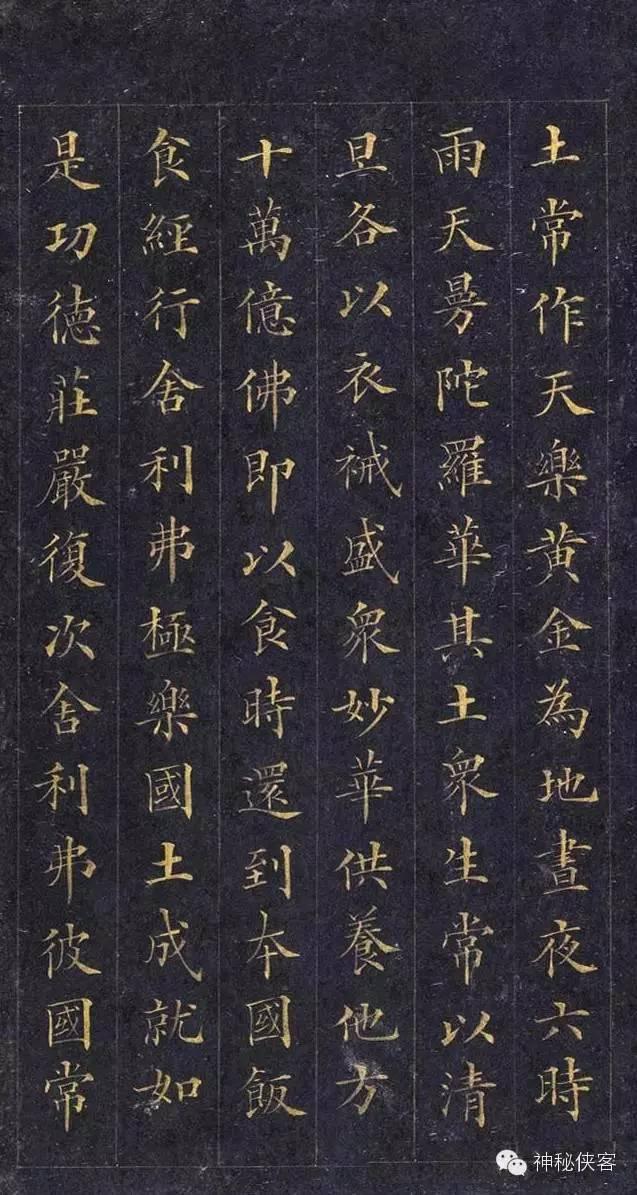 土常作天樂黄金為地晝夜六時
雨天曼陀羅華其土衆生常以清
旦各以衣祴盛衆妙華供養他方
十萬億佛即以食時還到本國飯
食經行舍利弗極樂國土成就如
是功徳莊嚴復次舍利弗彼國常
神秘侠客